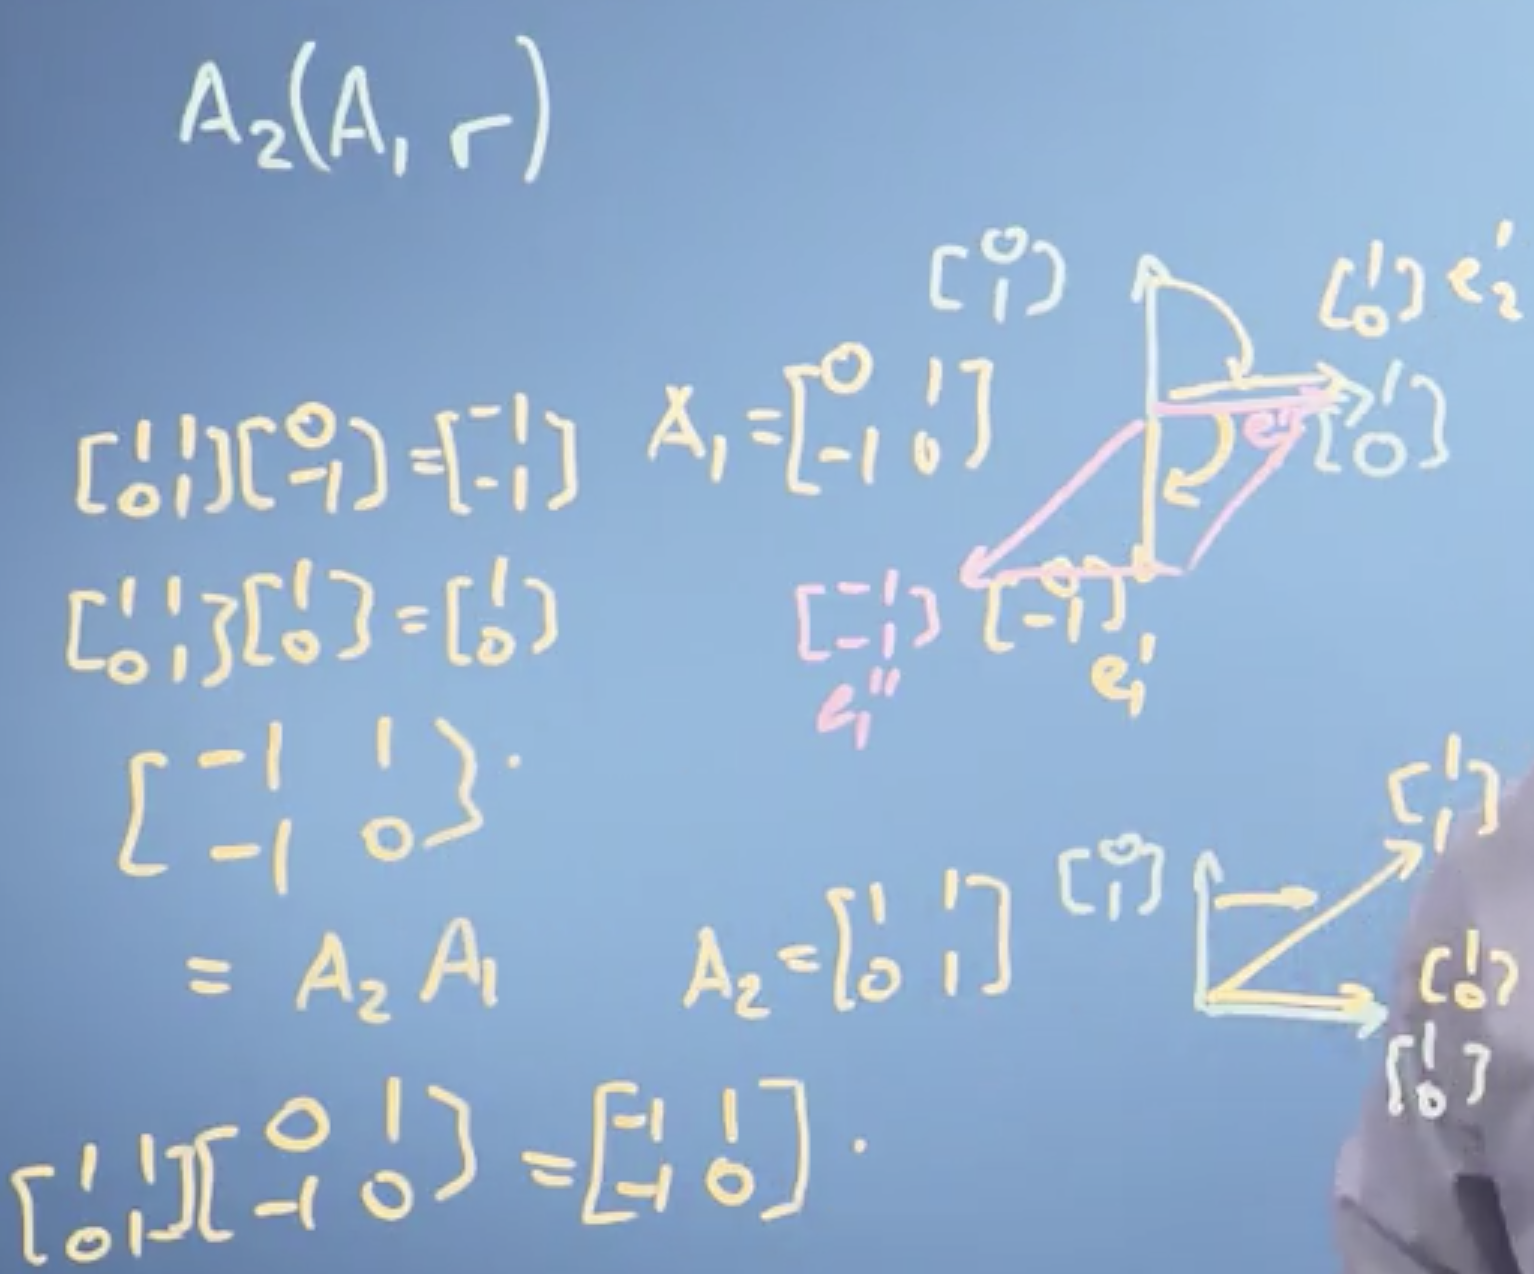 A₂(A₁ r)
[0 1] [1 0] e₂'
[1 1; 0 1][0 -1] = [-1 -1] A₁ = [0 1; -1 0] e₂'' [1 0]
[1 1; 0 1][1 0] = [1 0] [-1 -1] [0 -1]
e₁'' e₁'
[-1 1; -1 0].
[1 1]
= A₂ A₁ A₂ = [1 1; 0 1] [0 1] [1 0]
[1 0]
[1 1; 0 1][0 1; -1 0] = [-1 1; -1 0].